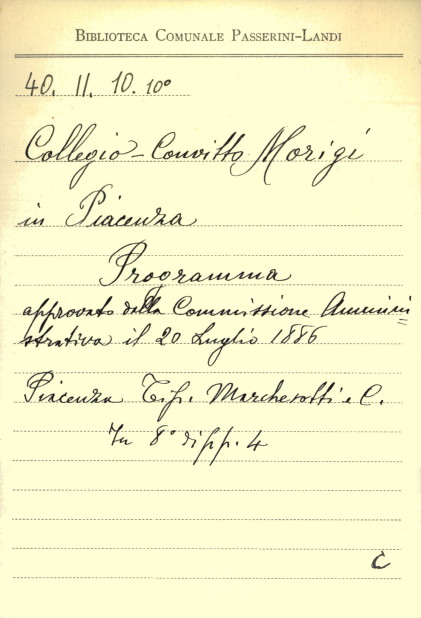 BIBLIOTECA COMUNALE PASSERINI-LANDI
40. II. 10. 10º
Collegio-Convitto Morigi
in Piacenza
Programma
approvato dalla Commissione Ammini
strativa il 20 Luglio 1886
Piacenza Tip. Marchesotti e C.
In 8º di pp. 4
C